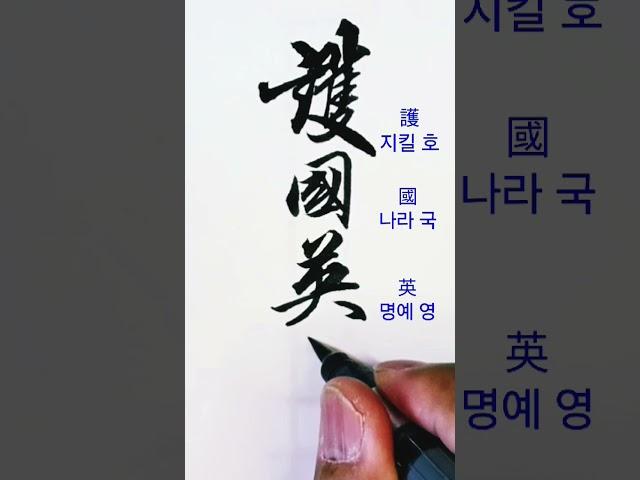 護國英
護
지킬 호
國
나라 국
英
명예 영
지킬 호
國
나라 국
英
명예 영